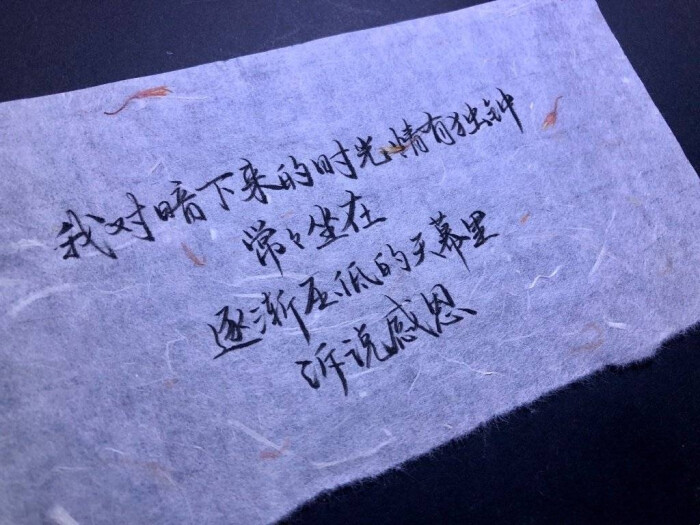 我对暗下来的时光情有独钟
常々坐在
逐渐压低的天幕里
诉说感恩